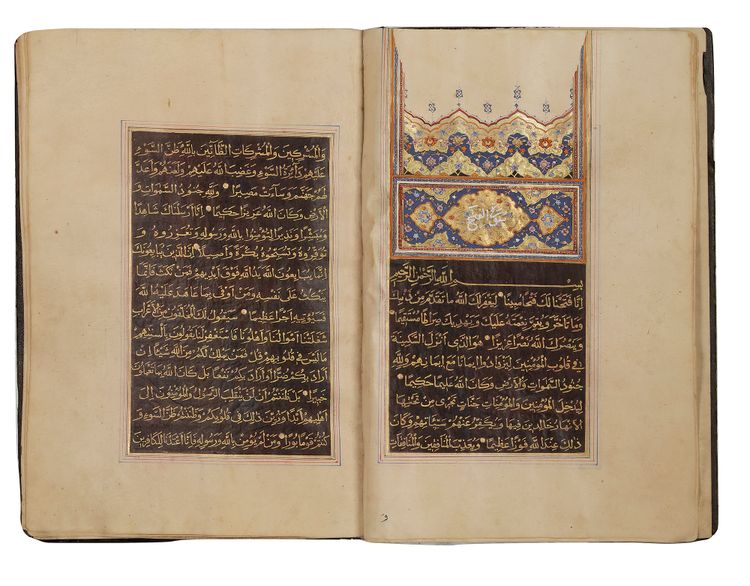 سورة الفتح
بسم الله الرحمن الرحيم
انا فتحنا لك فتحا مبينا ليغفر لك الله ما تقدم من ذنبك
وما تأخر ويتم نعمته عليك ويهديك صراطا مستقيما
وينصرك الله نصرا عزيزا هو الذي انزل السكينة
في قلوب المؤمنين ليزدادوا ايمانا مع ايمانهم ولله
جنود السموات والارض وكان الله عليما حكيما
ليدخل المؤمنين والمؤمنات جنات تجري من تحتها
الانهار خالدين فيها ويكفر عنهم سيئاتهم وكان
ذلك عند الله فوزا عظيما ويعذب المنافقين والمنافقات
والمشركين والمشركات الظانين بالله ظن السوء
عليهم دائرة السوء وغضب الله عليهم ولعنهم واعد
لهم جهنم وساءت مصيرا ولله جنود السموات و
الارض وكان الله عزيزا حكيما انا ارسلناك شاهدا
ومبشرا ونذيرا لتؤمنوا بالله ورسوله وتعزروه و
توقروه وتسبحوه بكرة واصيلا ان الذين يبايعونك
انما يبايعون الله يد الله فوق ايديهم فمن نكث فانما
ينكث على نفسه ومن اوفى بما عاهد عليه الله
فسيؤتيه اجرا عظيما سيقول لك المخلفون من الاعراب
شغلتنا اموالنا واهلونا فاستغفر لنا يقولون بالسنتهم
ما ليس في قلوبهم قل فمن يملك لكم من الله شيئا ان
اراد بكم ضرا او اراد بكم نفعا بل كان الله بما تعملون
خبيرا بل ظننتم ان لن ينقلب الرسول والمؤمنون الى
اهليهم ابدا وزين ذلك في قلوبكم وظننتم ظن السوء و
كنتم قوما بورا ومن لم يؤمن بالله ورسوله فانا اعتدنا للكافرين